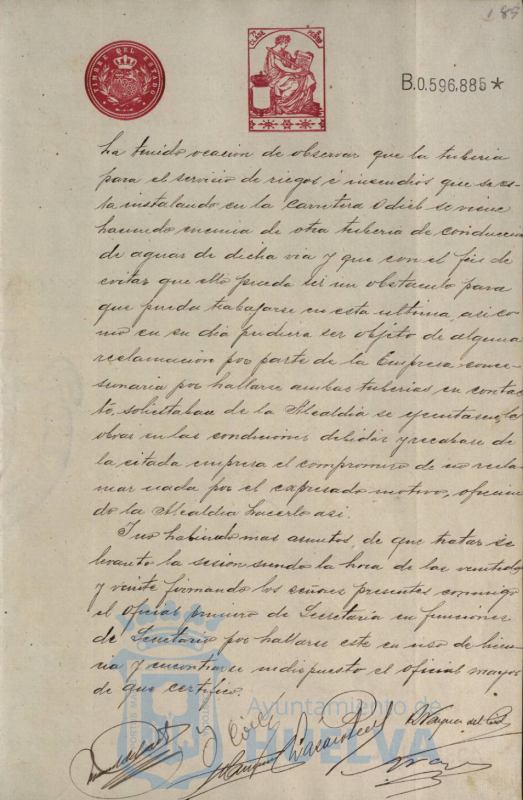 189
TIMBRE DEL ESTADO
CLASE
B.0.596.885*
ha tenido ocacion de observar que la tuberia
para el servicio de riegos é incendios que se es-
ta instalando en la Carretera Odiel se viene
haciendo encima de otra tuberia de conduccion
de aguas de dicha via y que con el fin de
evitar que ello pueda ser un obstaculo para
que pueda trabajarse en esta ultima, asi co-
mo en su dia pudiera ser objeto de alguna
reclamacion por parte de la Empresa conce-
sionaria por hallarse ambas tuberias en contac-
to, solicitaban de la Alcaldia se ejecutasen las
obras en las condiciones debidas y recabase de
la citada empresa el compromiso de no recla-
mar nada por el expresado motivo, ofrecien-
do la Alcaldia hacerlo asi.
Y no habiendo mas asuntos de que tratar se
levanto la sesion siendo la hora de las veintidos
y veinte firmando los señores presentes conmigo
el Oficial primero de Secretaría en funciones
de Secretario por hallarse este en uso de licen-
cia y encontrarse indispuesto el oficial mayor
de que certifico.
Ayuntamiento de
HUELVA